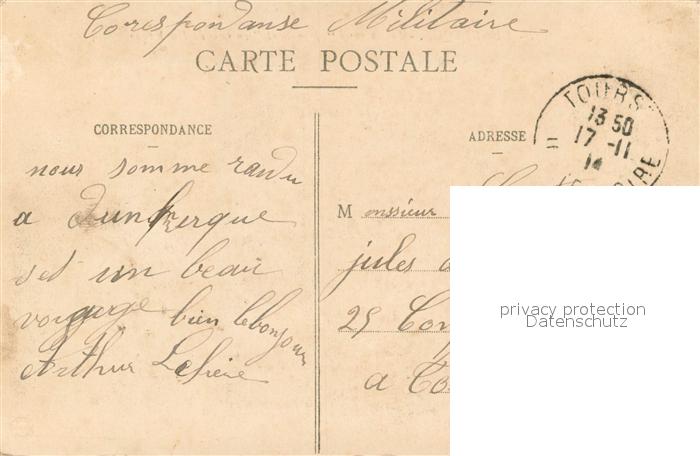 Corespondanse Militaire
CARTE POSTALE
CORRESPONDANCE
nous somme randu
a Dunkerque
set un beau
voyage bien lebonjour
Arthur
ADRESSE
TOURS
13 50
17 -11
14
Monssieur
jules
25
a
privacy protection
Datenschutz